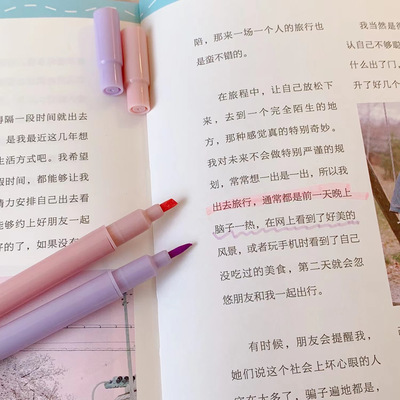 得隔一段时间就出去
是我最近这几年想
生活方式吧。我希望
假时间，都能够让我
精力安排自己出去看
能够约上好朋友一起
好的了，如果没有
陪，那来一场一个人的旅行也
是蛮不错的。
在旅程中，让自己放松下
来，去到一个完全陌生的地
方，那种感觉真的特别奇妙。
我对未来不会做特别严谨的规
划，常常想一出是一出，所以我
出去旅行，通常都是前一天晚上
脑子一热，在网上看到了好美的
风景，或者玩手机时看到了自己
没吃过的美食，第二天就会忽
悠朋友和我一起出行。
有时候，朋友会提醒我，
她们说这个社会上坏心眼的人
实在太多了，骗子遍地都是，
我当然是
认自己不够聪
什么出了门，
升了好几个